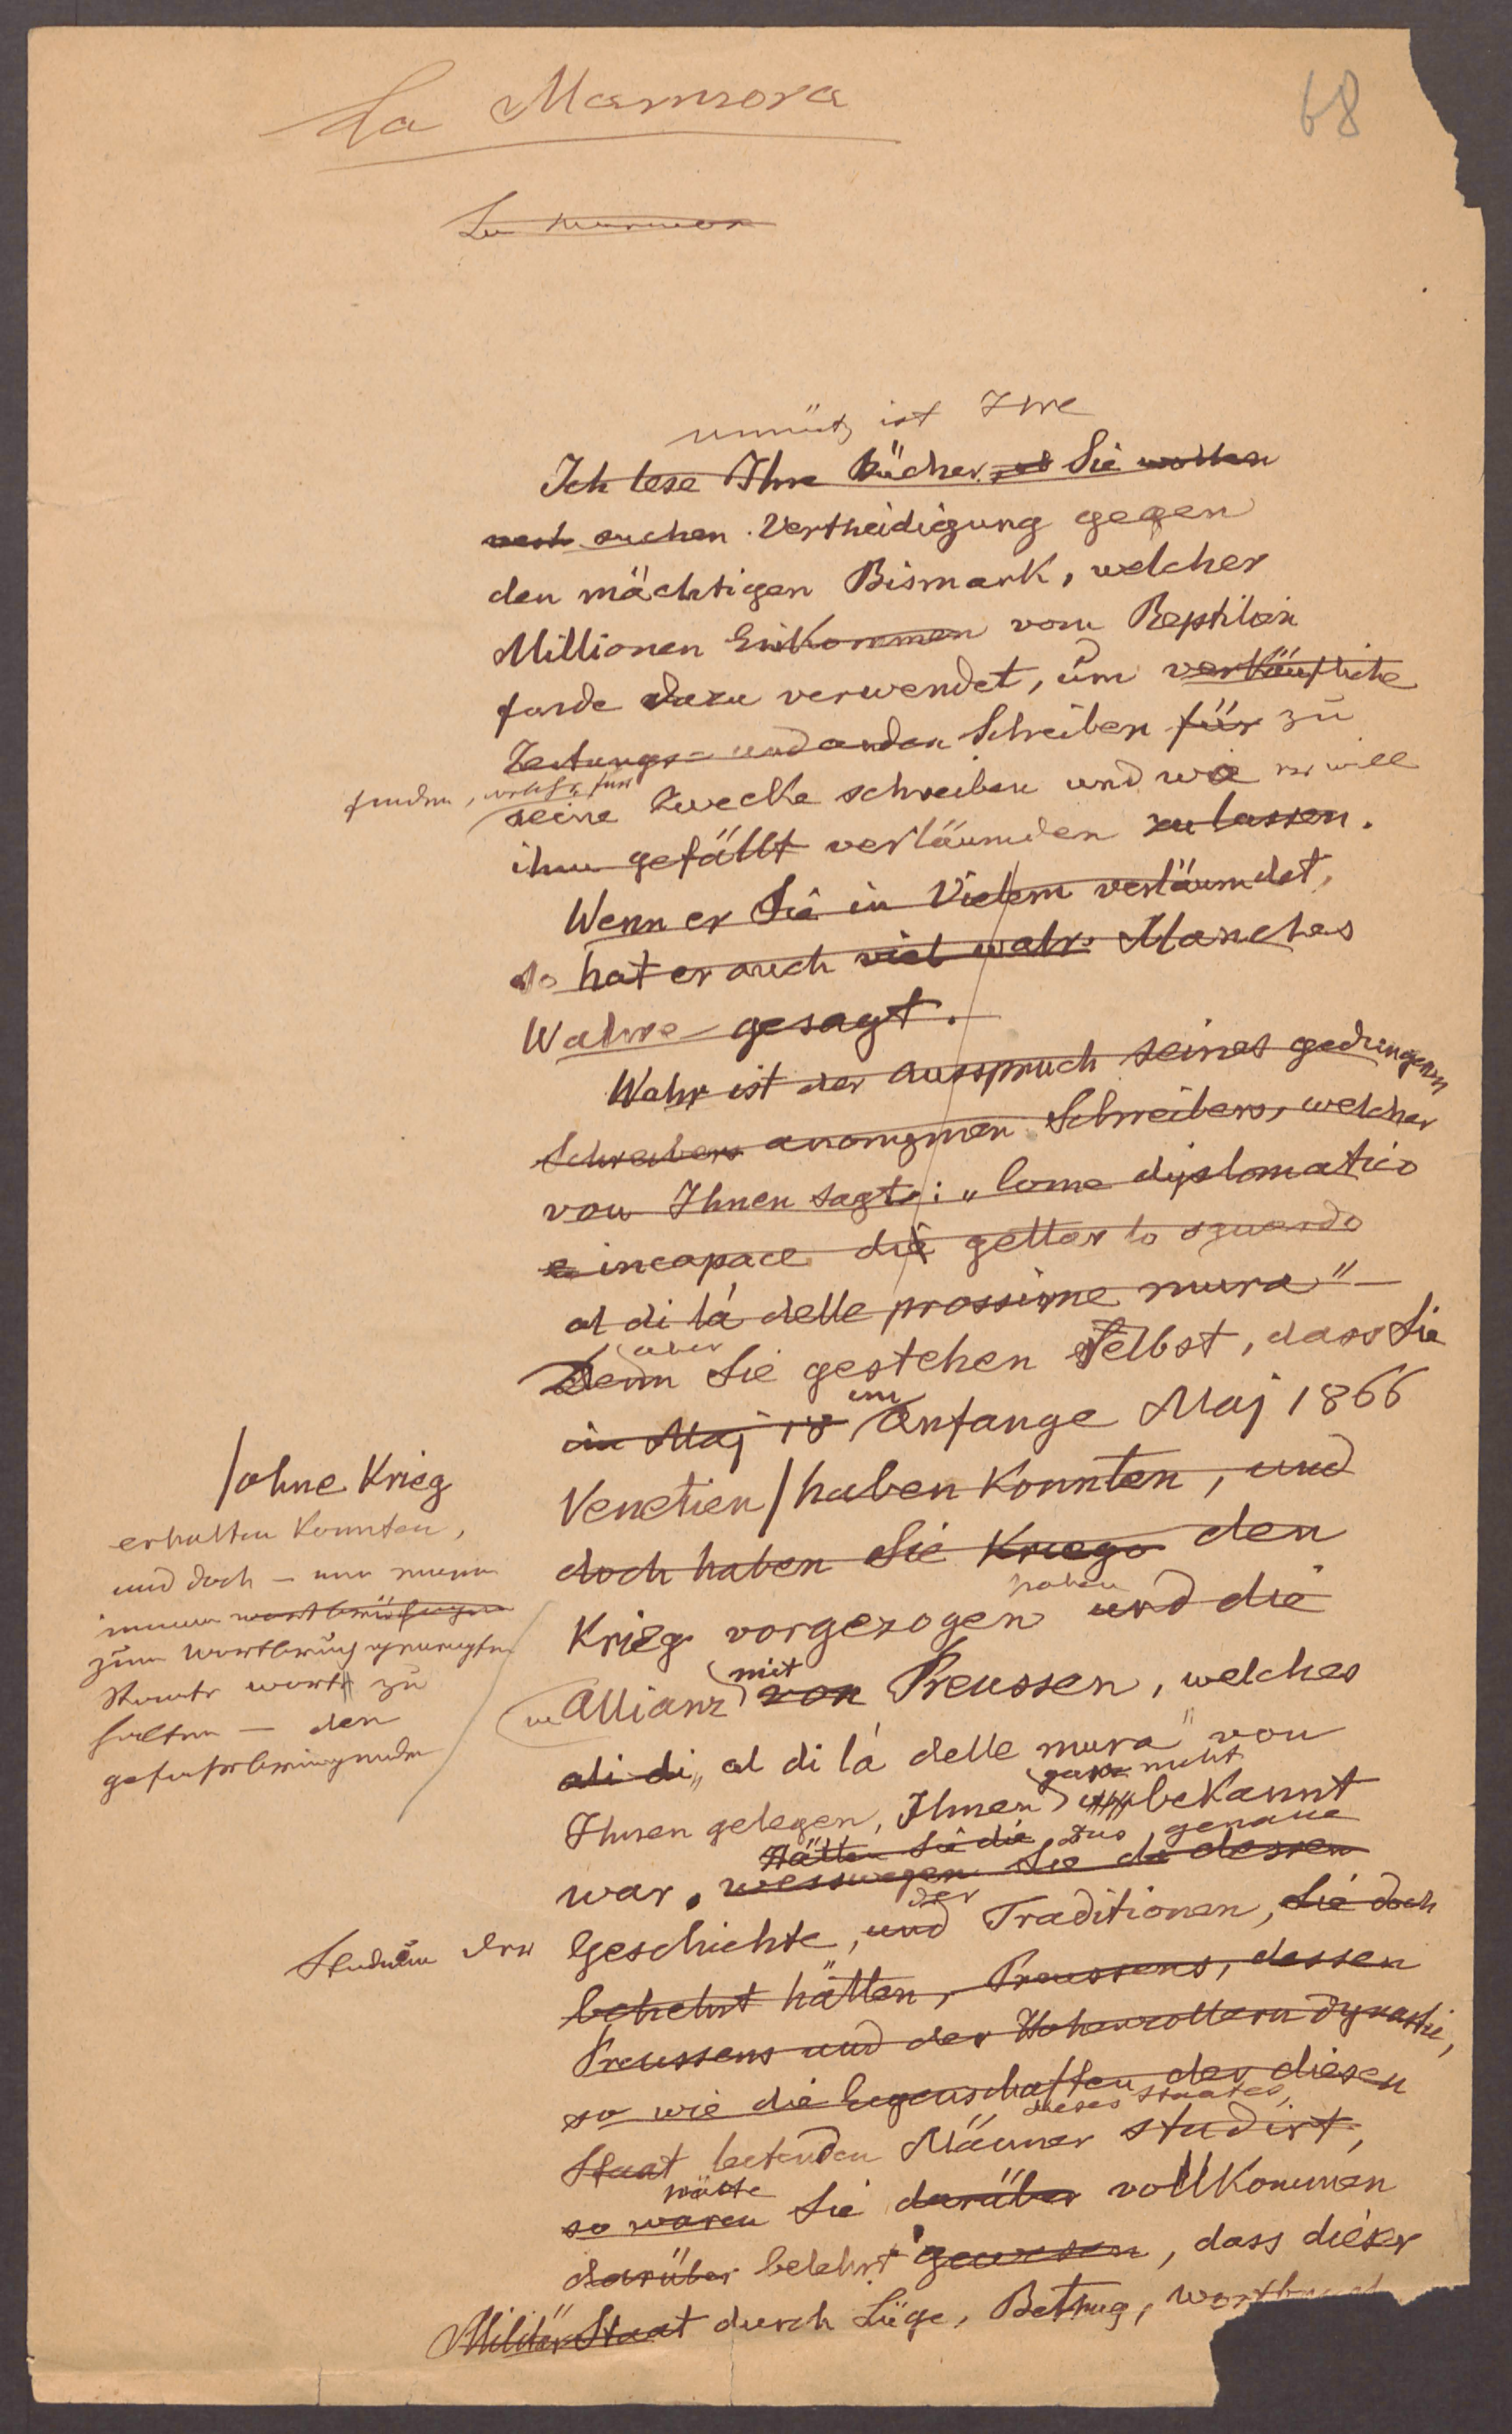 La Marmora
68
La Marmora
unnütz ist Ihre
Ich lese Ihre Bücher, Sie wollen
suchen Vertheidigung gegen
den mächtigen Bismark, welcher
Millionen Einkommen vom Reptilien
fonde dazu verwendet, um verkäufliche
Zeitungs- und anden Schreiben für zu
finden, welche für
seine Zwecke schreiben und wie er will
ihm gefällt verläumden zu lassen.
Wenn er Sie in Vielem verläumdet,
so hat er auch viel wahr. Manches
Wahre gesagt.
Wahr ist der Ausspruch seines gedungenen
Schreibers anonymen Schreibers, welcher
von Ihnen sagte: „Come diplomatico
e incapace di gettar lo sguardo
al di lá delle prossime mura"
aber
Denn Sie gestehen selbst, dass Sie
im
im Maj 18 Anfange Maj 1866
Venetien / haben konnten, und
/ ohne Krieg
erhalten konnten,
und doch – um
immer
zum Wortbruch
Staate wort zu
halten – den
gefahrbringenden
doch haben Sie Kriege den
haben
Krieg vorgezogen und die
mit
Allianz von Preussen, welches
ali di „al di lá delle mura" von
ganz nicht
Ihnen gelegen, Ihnen bekannt
Hätten Sie die das genaue
war, wesswegen Sie da dessen
der
Studium der Geschichte, und Traditionen, Sie doch
belehrt hätten, Preussens, dessen
Preussens und der Hohenzollern Dynastie,
so wie die Eigenschaften der diesen
dieses Staates,
Staat leitenden Männer studirt,
hätte
so waren Sie darüber vollkommen
darüber belehrt gewesen, dass dieser
Militär Staat durch Lüge, Betrug,